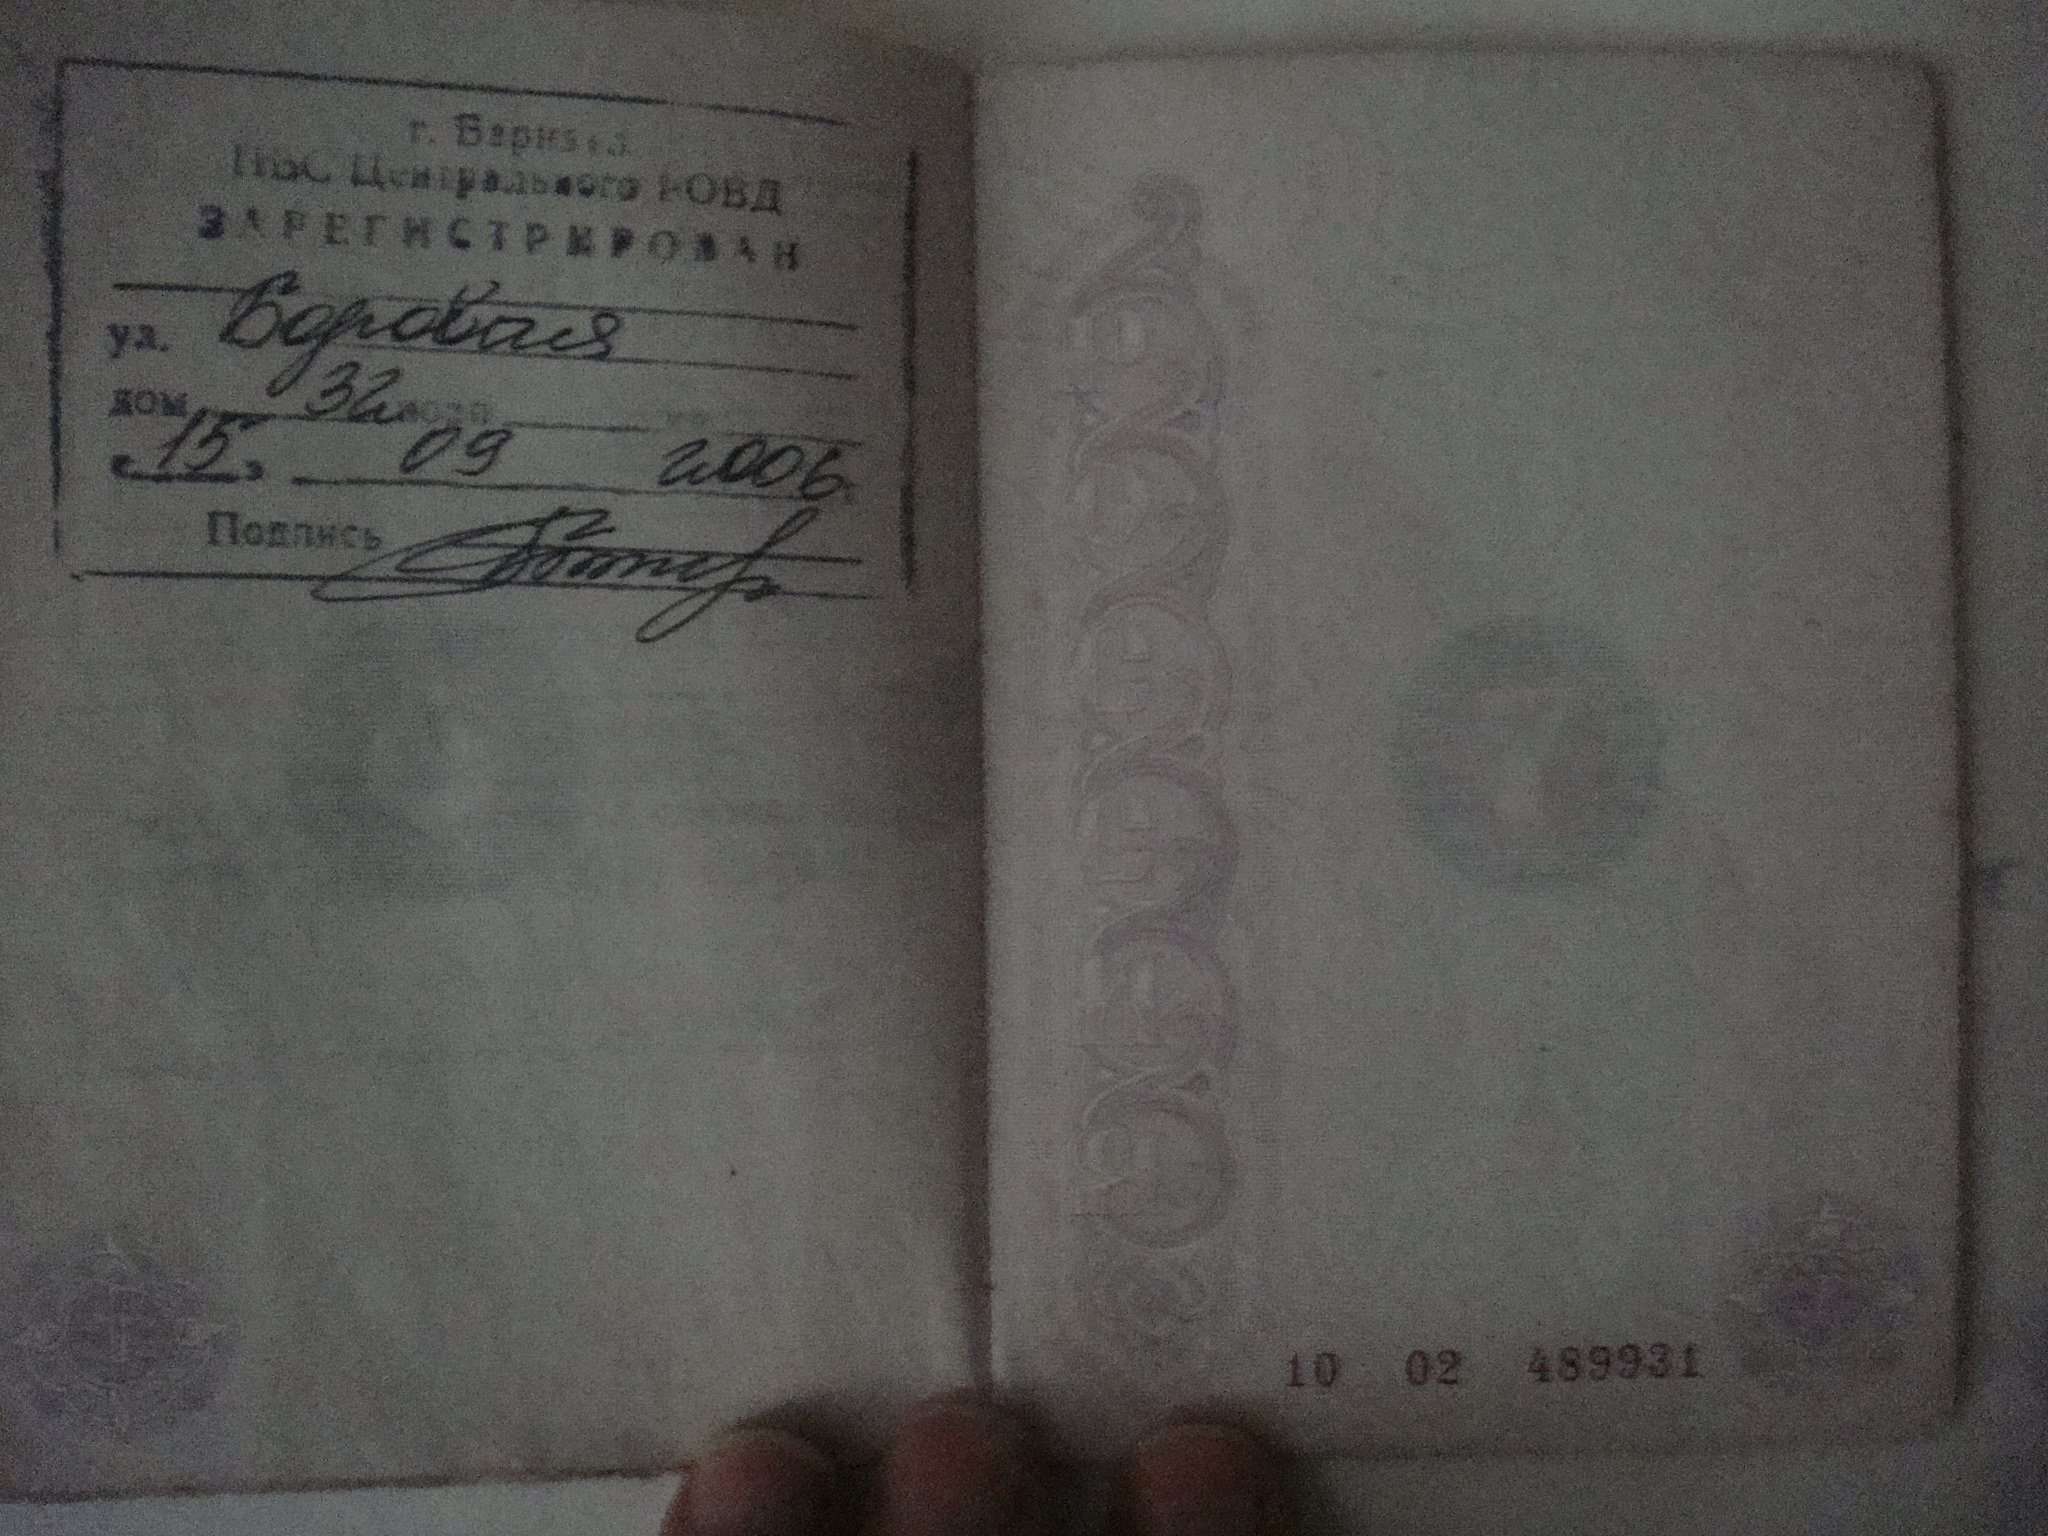 г. Барнаул
ПВС Центрального РОВД
ЗАРЕГИСТРИРОВАН
ул. Боровая
дом 32
«15» 09 2006
Подпись
7
10 02 489931